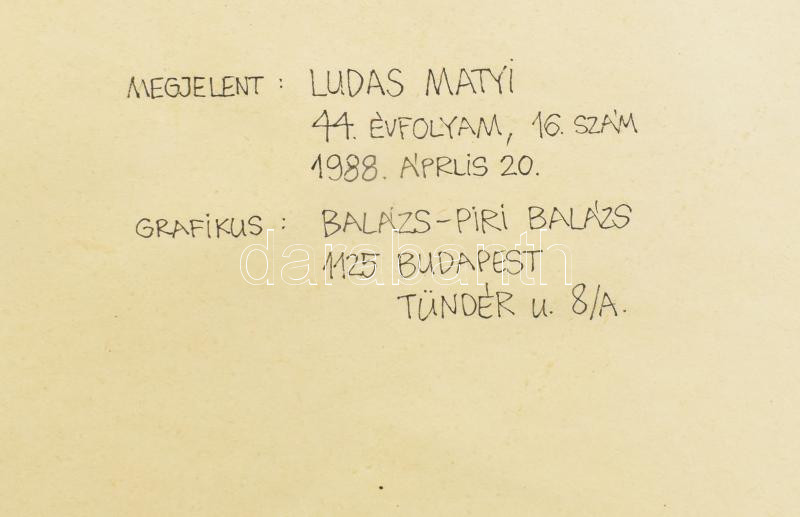 MEGJELENT: LUDAS MATYI
44. ÉVFOLYAM, 16. SZÁM
1988. ÁPRLIS 20.
GRAFIKUS: BALÁZS-PIRI BALÁZS
1125 BUDAPEST
TÜNDÉR U. 8/A.
darabanth